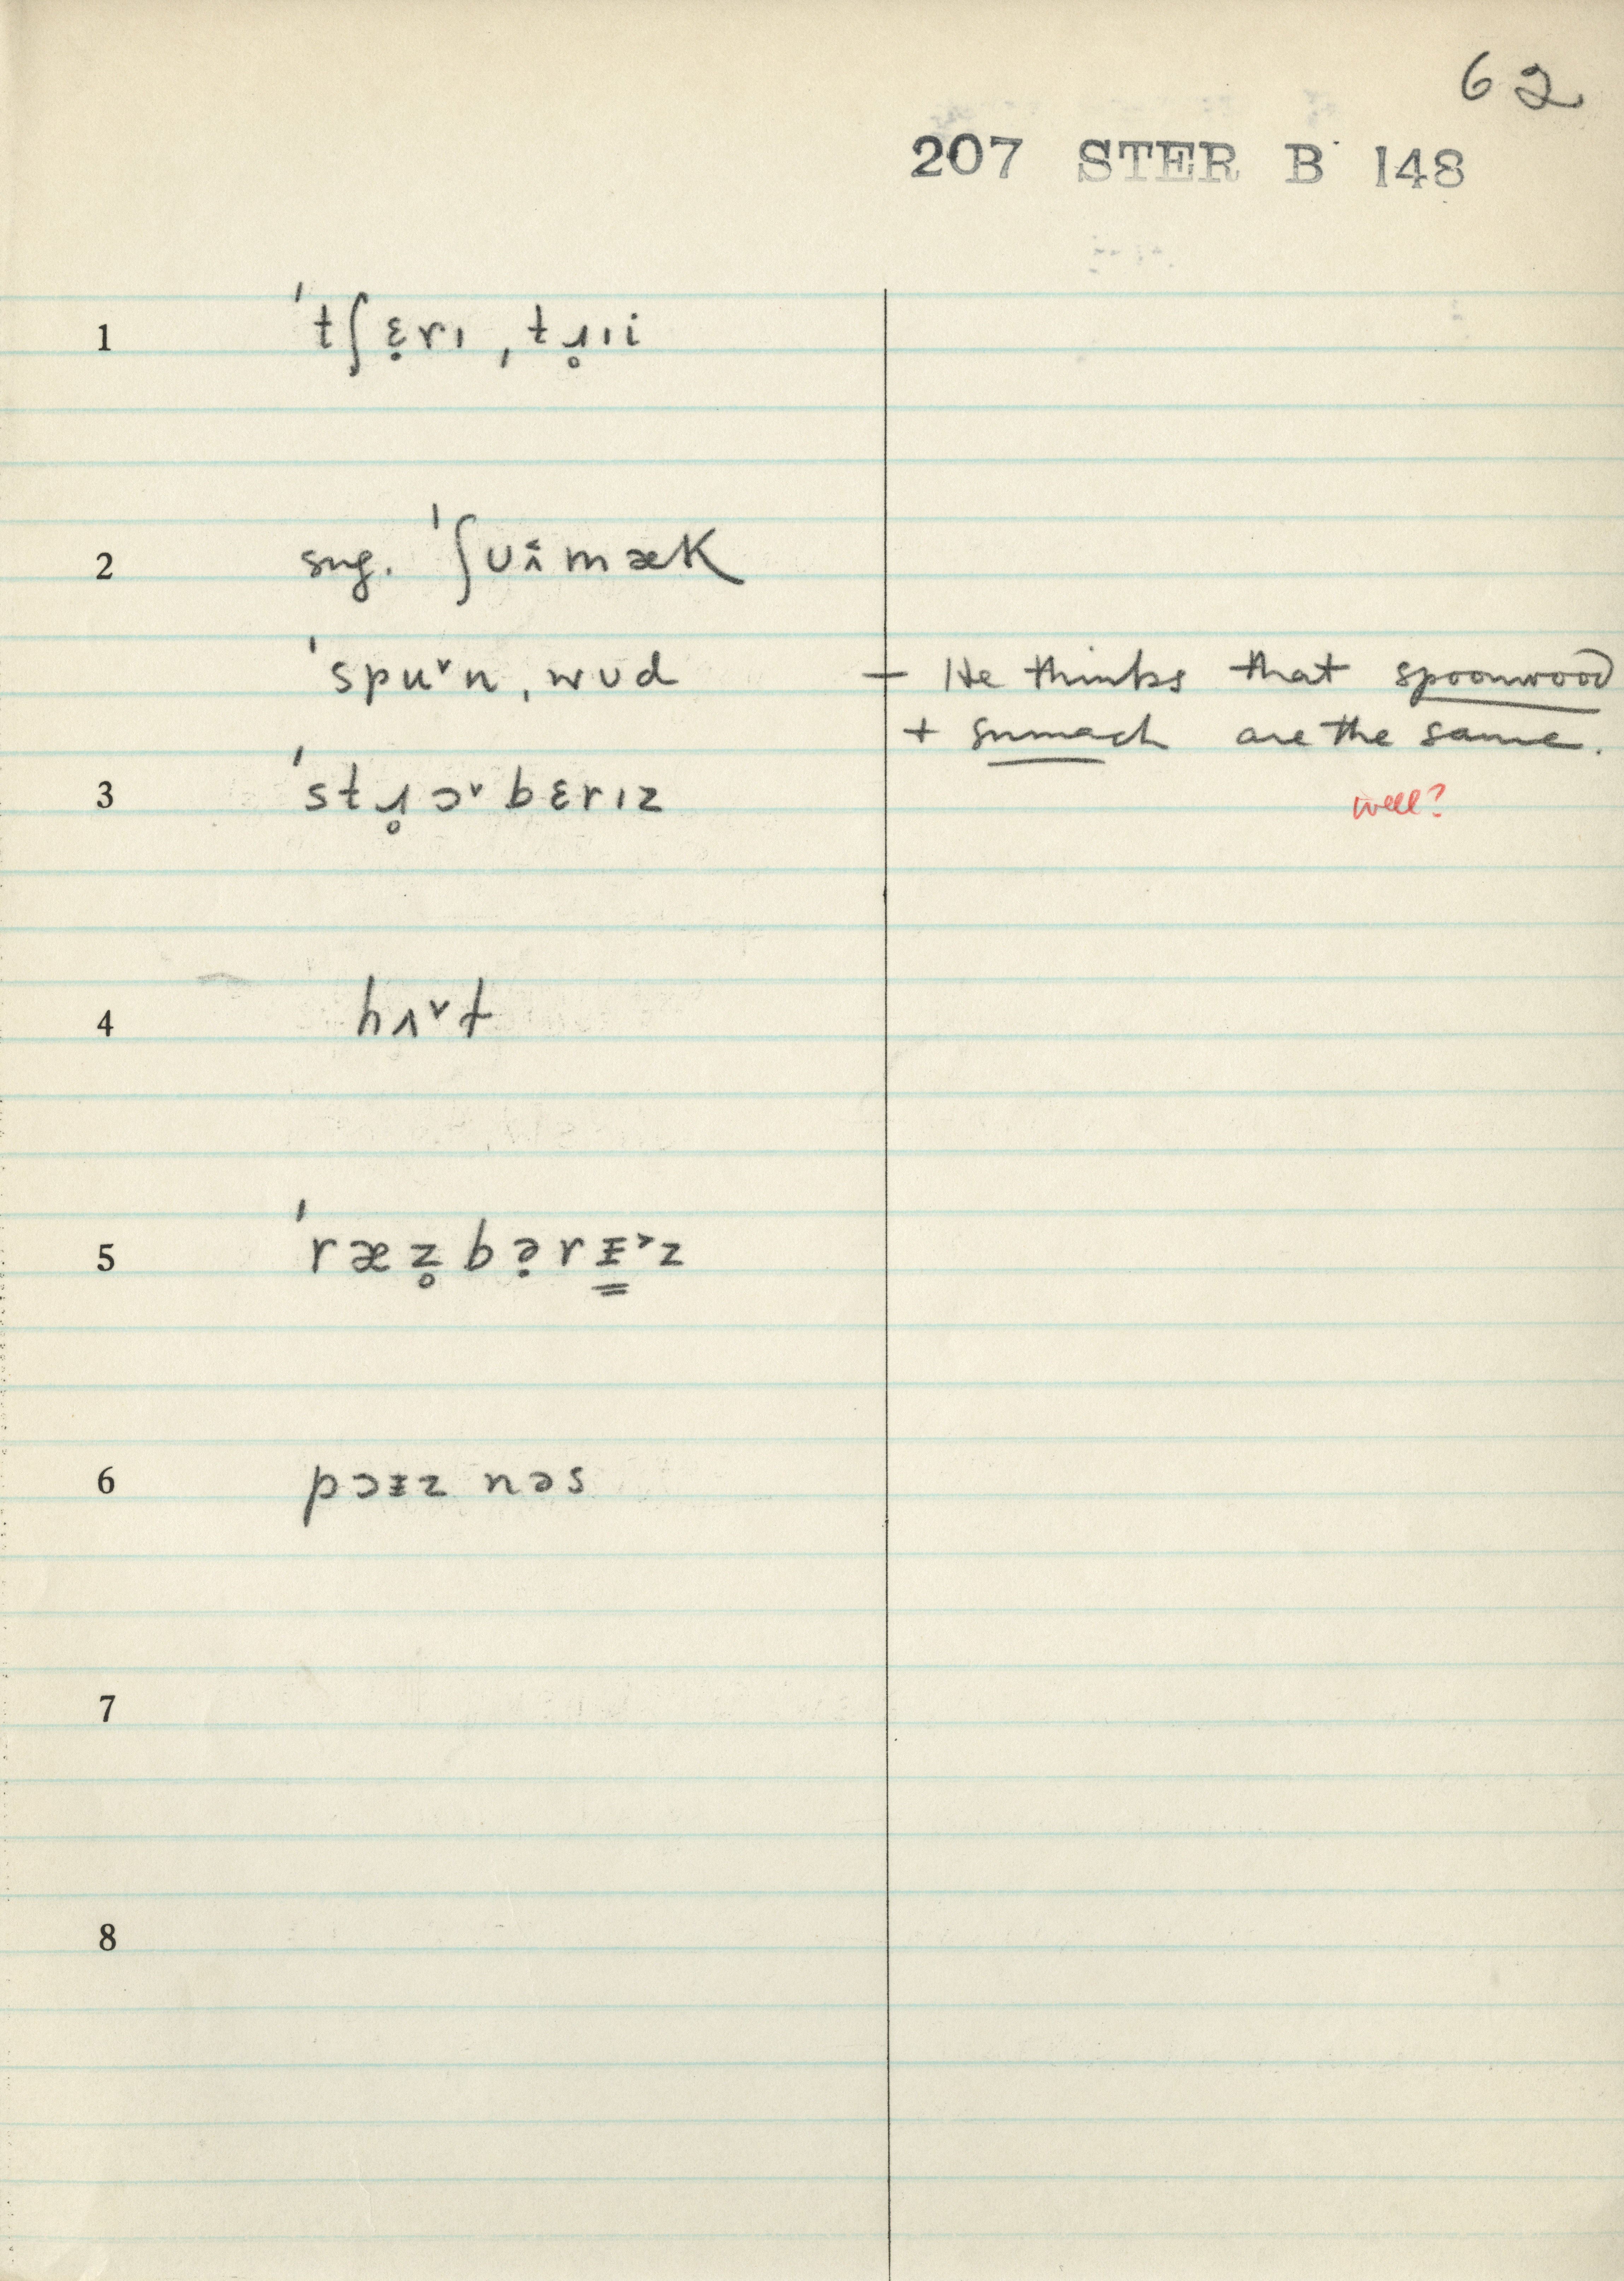 62
207 STER B 148
1 ˈtʃɛ̣rɪ ˌtɹ̥ɪi
2 sug. ˈʃuʌ̂mæK
ˈspu˅n ˌwud — He thinks that spoonwood
+ sumach are the same.
3 ˈstɹ̥ɔ˅bɛrɪz well?
4 hʌ˅t
5 ˈræz̥bə̣rɪ̵˃z
6 pɔɪ̵z nəs
7
8